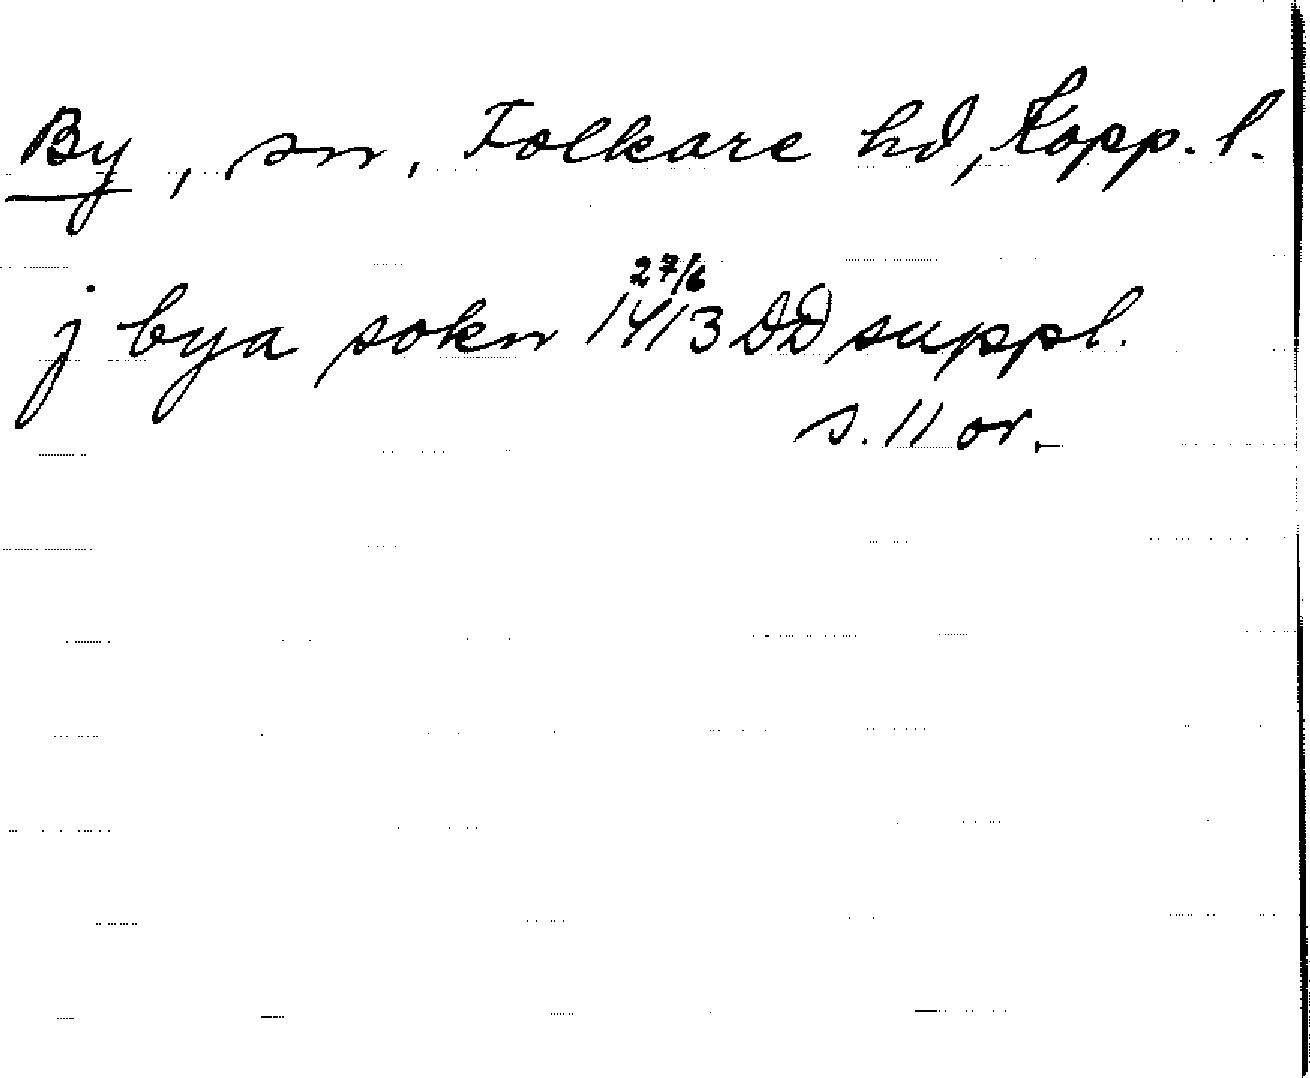 By, sn, Folkare hd, Kopp. l.
j bya sokn 27/6 1413 DD suppl.
s. 11 or.